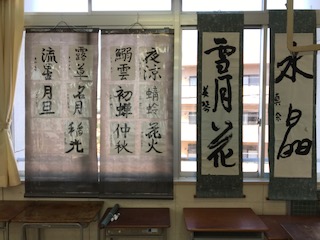 水晶
雪月花
夜涼 蜻蛉 花火
鰯雲 初蝶 仲秋
露草 名月 稲光
流星 月旦